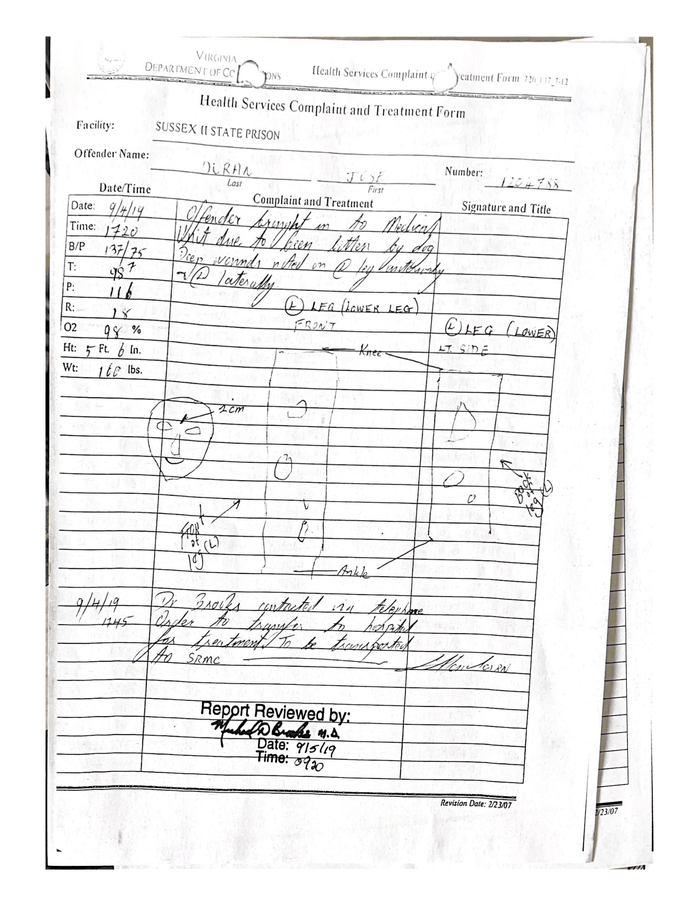 VIRGINIA
DEPARTMENT OF CO ONS Health Services Complaint eatment Form
Health Services Complaint and Treatment Form
Facility: SUSSEX II STATE PRISON
Offender Name: Number:
Last First
Date/Time Complaint and Treatment Signature and Title
Date: 9/4/19 Offender brought in to Medical
Time: 1720 Unit due to been bitten by dog
B/P 137/75 Deep wounds noted on (L) leg anteriorly
T: 98⁷ (L) laterally
P: 116
R: 18 (L) LEG (LOWER LEG)
O2 98 % FRONT (L) LEG (LOWER)
Ht: 5 Ft. 6 In. Knee LT SIDE
Wt: 160 lbs.
2cm
Back of leg (L)
Front of leg (L)
Ankle
9/4/19 Dr Brooks contacted via telephone
1745 Order to transfer to hospital
for treatment. To be transported
to SRMC
Report Reviewed by:
Michael D Brooks M.D.
Date: 9/5/19
Time: 0920
Revision Date: 2/23/07
2/23/07